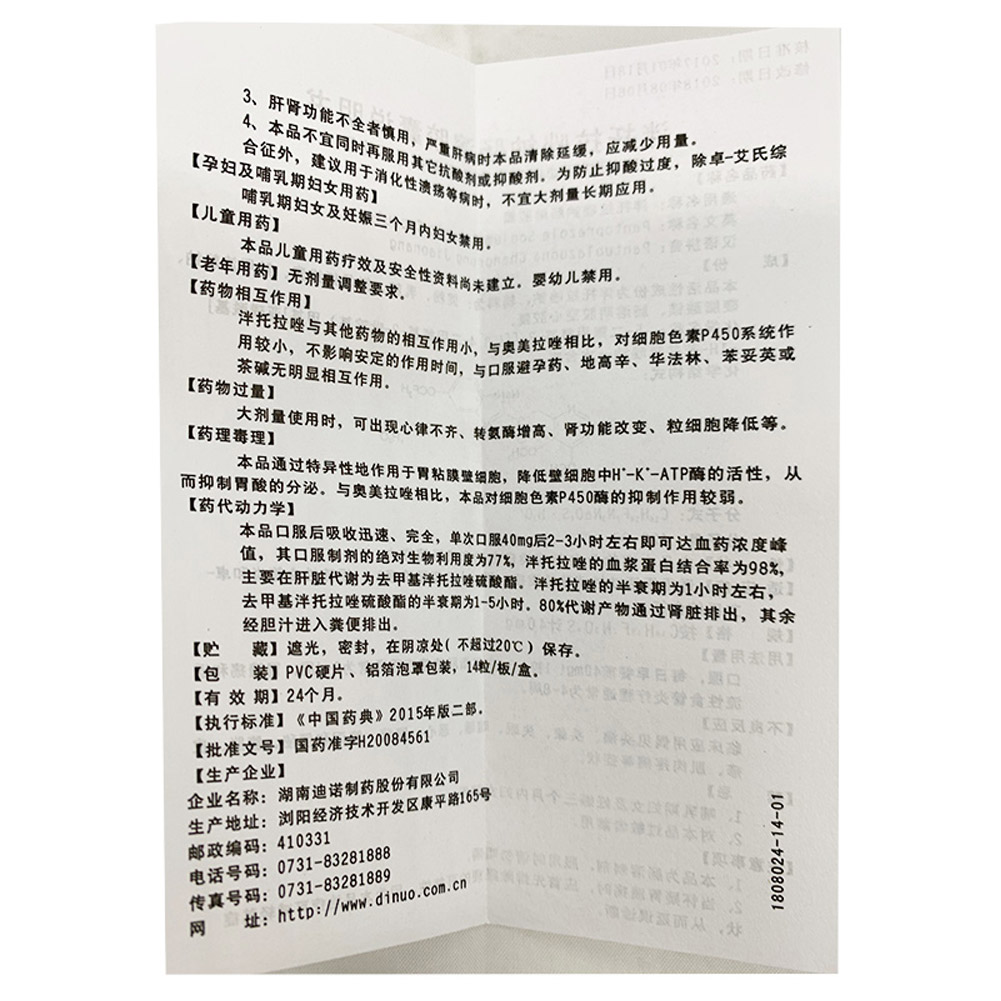 3、肝肾功能不全者慎用，严重肝病时本品清除延缓，应减少用量。
4、本品不宜同时再服用其它抗酸剂或抑酸剂。为防止抑酸过度，除卓-艾氏综
合征外，建议用于消化性溃疡等病时，不宜大剂量长期应用。
【孕妇及哺乳期妇女用药】
哺乳期妇女及妊娠三个月内妇女禁用。
【儿童用药】
本品儿童用药疗效及安全性资料尚未建立。婴幼儿禁用。
【老年用药】无剂量调整要求。
【药物相互作用】
泮托拉唑与其他药物的相互作用小，与奥美拉唑相比，对细胞色素P450系统作
用较小，不影响安定的作用时间，与口服避孕药、地高辛、华法林、苯妥英或
茶碱无明显相互作用。
【药物过量】
大剂量使用时，可出现心律不齐、转氨酶增高、肾功能改变、粒细胞降低等。
【药理毒理】
本品通过特异性地作用于胃粘膜壁细胞，降低壁细胞中H⁺-K⁺-ATP酶的活性，从
而抑制胃酸的分泌。与奥美拉唑相比，本品对细胞色素P450酶的抑制作用较弱。
【药代动力学】
本品口服后吸收迅速、完全，单次口服40mg后2-3小时左右即可达血药浓度峰
值，其口服制剂的绝对生物利用度为77%，泮托拉唑的血浆蛋白结合率为98%，
主要在肝脏代谢为去甲基泮托拉唑硫酸酯。泮托拉唑的半衰期为1小时左右，
去甲基泮托拉唑硫酸酯的半衰期为1-5小时。80%代谢产物通过肾脏排出，其余
经胆汁进入粪便排出。
【贮 藏】遮光，密封，在阴凉处(不超过20℃)保存。
【包 装】PVC硬片、铝箔泡罩包装，14粒/板/盒。
【有 效 期】24个月。
【执行标准】《中国药典》2015年版二部。
【批准文号】国药准字H20084561
【生产企业】
企业名称：湖南迪诺制药股份有限公司
生产地址：浏阳经济技术开发区康平路165号
邮政编码：410331
电话号码：0731-83281888
传真号码：0731-83281889
网 址：http://www.dinuo.com.cn
1808024-14-01